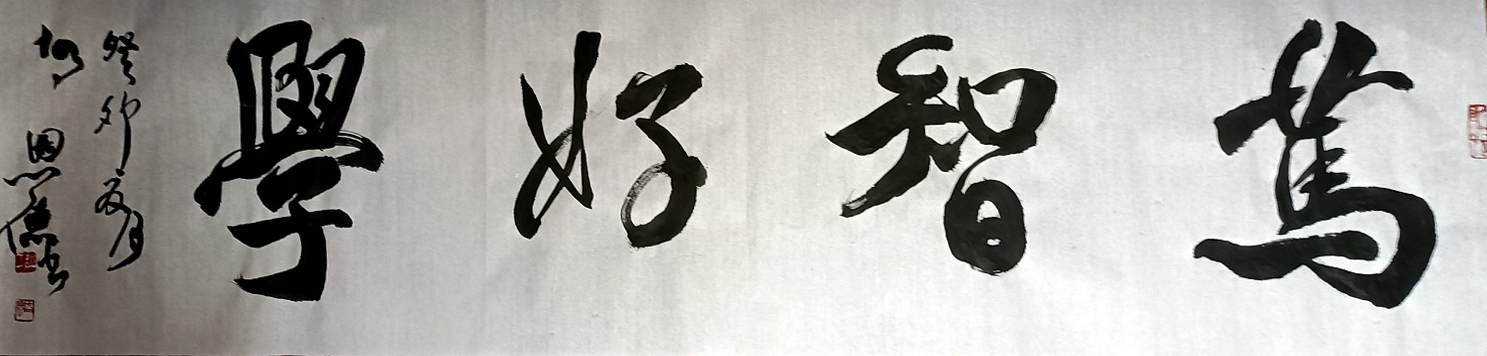 篤智好學
癸卯夏月
恩德书